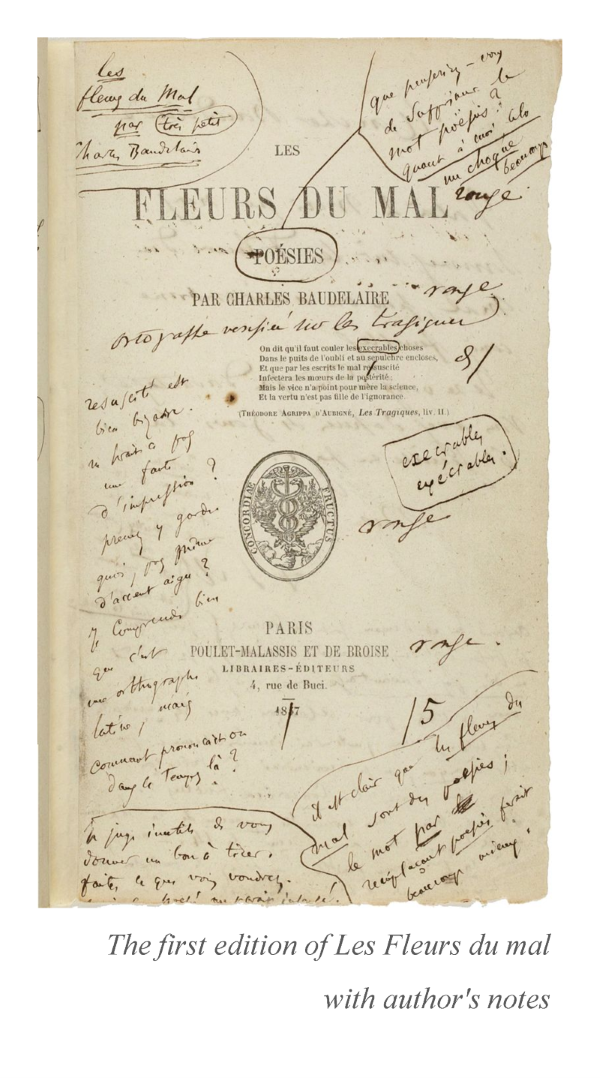 les
fleurs du Mal
par très petit
Charles Baudelaire
que penseriez-vous
de supprimer le
mot poésies ?
quant à moi cela
me choque
beaucoup
LES
FLEURS DU MAL
rouge
POÉSIES
PAR CHARLES BAUDELAIRE
rouge
sur les tragiques
On dit qu'il faut couler les execrables choses
Dans le puits de l'oubli et au sepulchre encloses,
Et que par les escrits le mal resuscité
Infectera les mœurs de la postérité;
Mais le vice n'a point pour mère la science,
Et la vertu n'est pas fille de l'ignorance.
(THÉODORE AGRIPPA D'AUBIGNÉ, Les Tragiques, liv. II)
resuscité est
bien bizarre.
ne serait-ce pas
une faute
d'impression ?
prenez y garde.
quoi, pas même
d'accent aigu ?
je comprends bien
que c'est
une orthographe
latine, mais
comment prononçait-on
dans le temps là ?
execrables
exécrables.
CONCORDIÆ FRUCTUS
rouge
PARIS
POULET-MALASSIS ET DE BROISE
rouge.
LIBRAIRES-ÉDITEURS
4, rue de Buci.
1857
/5
je juge inutile de vous
donner un bon à tirer.
faites ce que vous voudrez.
il est clair que les fleurs du
mal sont des poésies ;
le mot par
remplaçant poésies ferait
beaucoup mieux.
The first edition of Les Fleurs du mal
with author's notes